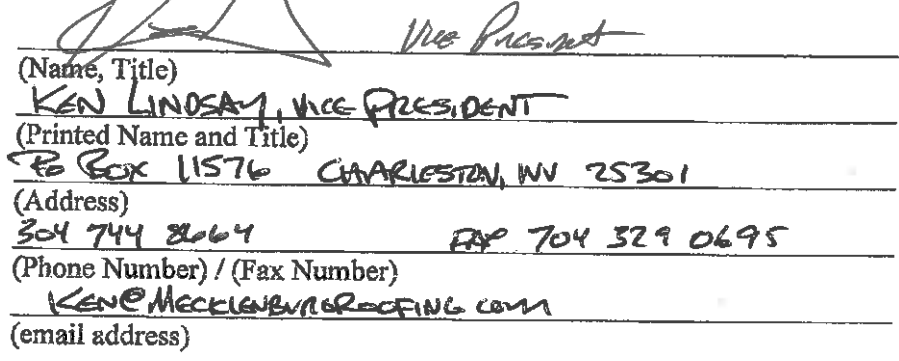 Vice President
(Name, Title)
KEN LINDSAY, VICE PRESIDENT
(Printed Name and Title)
PO BOX 11576 CHARLESTON, WV 25301
(Address)
304 744 8664 FAX 704 329 0695
(Phone Number) / (Fax Number)
KEN@MECKLENBURGROOFING COM
(email address)